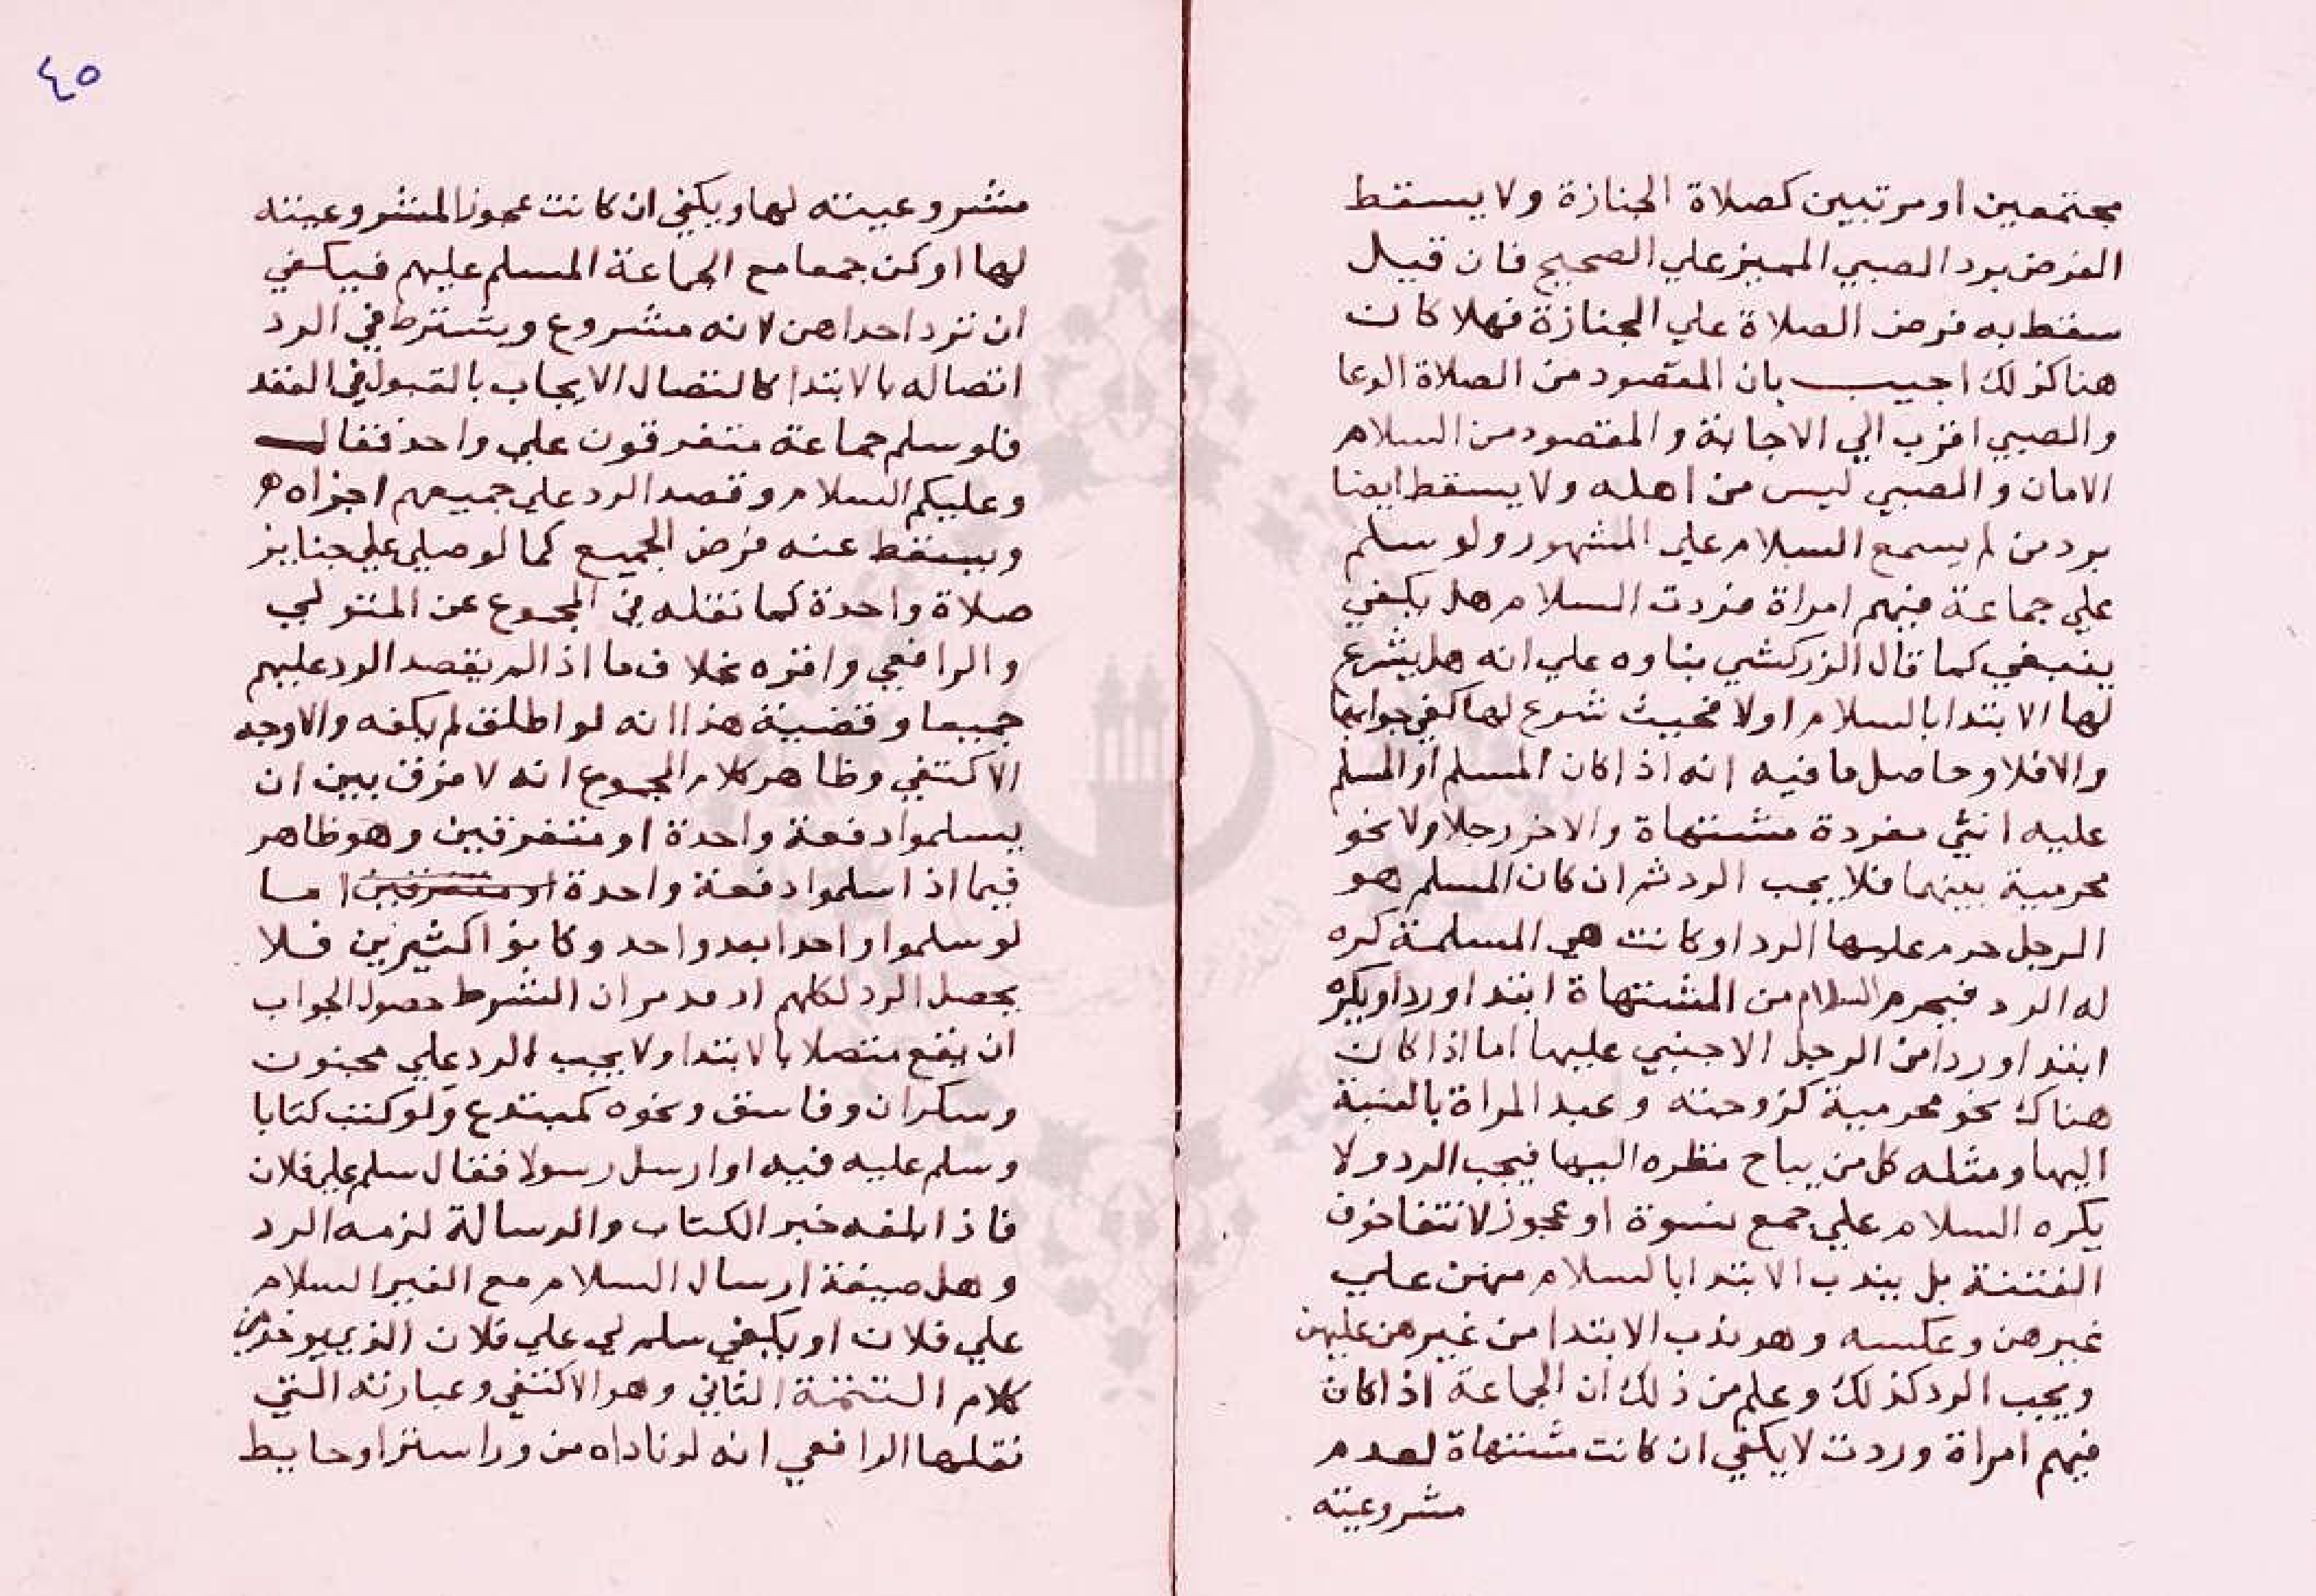 مجتمعين او مرتبين كصلاة الجنازة ولا يسقط
الفرض برد الصبي المميز علي الصحيح فان قيل
سقط به فرض الصلاة علي الجنازة فهلا كان
هنا كذلك اجيب بان المقصود من الصلاة الدعا
والصبي اقرب الي الاجابة والمقصود من السلام
الامان والصبي ليس من اهله ولا يسقط ايضا
برد من لم يسمع السلام علي المشهور ولو سلم
علي جماعة فيهم امراة فردت السلام هل يكفي
ينبغي كما قال الزركشي بناوه علي انه هل يشرع
لها الابتدا بالسلام اولا فحيث شرع لها كفي جوابها
والا فلا وحاصل ما فيه انه اذا كان المسلم او المسلم
عليه انثي مفردة مشتهاة والاخر رجلا ولا نحو
محرمية بينهما فلا يجب الرد ثم ان كان المسلم هو
الرجل حرم عليها الرد او كانت هي المسلمة كره
له الرد فيحرم السلام من المشتهاة ابتدا وردا ويكره
ابتدا وردا من الرجل الاجنبي عليها اما اذا كان
هناك نحو محرمية كزوجته وعبد المراة بالنسبة
اليها ومثله كل من يباح نظره اليها فيجب الرد ولا
يكره السلام علي جمع نسوة او عجوز لا نتخافون
الفتنة بل يندب الابتدا بالسلام منهن علي
غيرهن وعكسه وهو ندب الابتدا من غيرهن عليهن
ويجب الرد كذلك وعلم من ذلك ان الجماعة اذا كان
فيهم امراة وردت لا يكفي ان كانت مشتهاة لعدم
مشروعيته
٤٥
مشروعيته لها ويكفي ان كانت عجوزا لمشروعيته
لها او كن جمعا مع الجماعة المسلم عليهم فيكفي
ان ترد احداهن لانه مشروع ويشترط في الرد
اتصاله بالابتدا كاتصال الايجاب بالقبول في العقد
فلو سلم جماعة متفرقون علي واحد فقال
وعليكم السلام وقصد الرد علي جميعهم اجزاه
ويسقط عنه فرض الجميع كما لو صلي علي جنايز
صلاة واحدة كما نقله في المجموع عن المتولي
والرافعي واقره بخلاف ما اذا لم يقصد الرد عليهم
جميعا وقضية هذا انه لو اطلق لم يكفه والاوجه
الاكتفي وظاهر كلام المجموع انه لا فرق بين ان
يسلموا دفعة واحدة او متفرقين وهو ظاهر
فيما اذا سلموا دفعة واحدة او متفرقين اما
لو سلموا واحدا بعد واحد وكانوا كثيرين فلا
يحصل الرد لكلهم اذ قد مر ان الشرط حصول الجواب
ان يقع متصلا بالابتدا ولا يجب الرد علي مجنون
وسكران وفاسق ونحوه كمبتدع ولو كتب كتابا
وسلم عليه فيه او ارسل رسولا فقال سلم علي فلان
فاذا بلغه خبر الكتاب والرسالة لزمه الرد
وهل صيغة ارسال السلام مع الغير السلام
علي فلان او يكفي سلم لي علي فلان الذي يوخذ من
كلام التتمة الثاني وهو الاكتفي وعبارته التي
نقلها الرافعي انه لو ناداه من ورا ستر او حايط